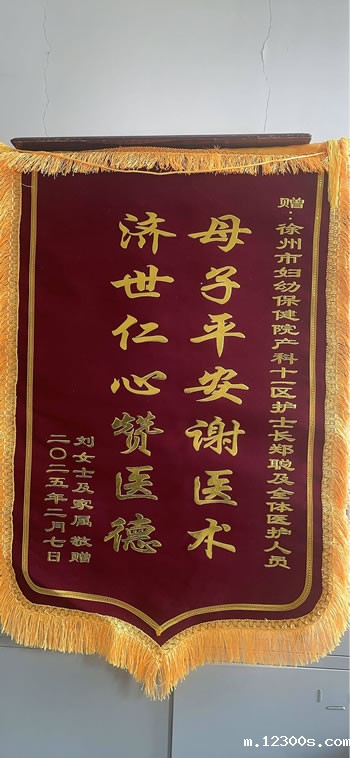 赠：徐州市妇幼保健院产科十一区护士长郑聪及全体医护人员
母子平安谢医术
济世仁心赞医德
刘女士及家属 敬赠
二〇二五年二月七日
m.12300s.com